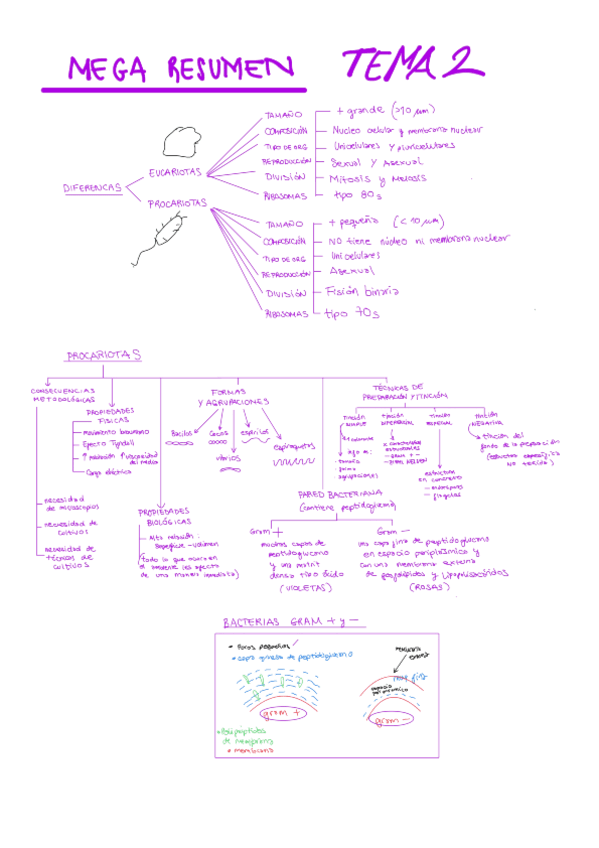 MEGA RESUMEN TEMA 2
DIFERENCIAS
EUCARIOTAS
TAMAÑO + grande (>10 µm)
COMPOSICIÓN Nucleo celular y membrana nuclear
TIPO DE ORG Unicelulares y pluricelulares
REPRODUCCIÓN Sexual y Asexual
DIVISIÓN Mitosis y Meiosis
RIBOSOMAS tipo 80s
PROCARIOTAS
TAMAÑO + pequeño (<10 µm)
COMPOSICIÓN NO tiene núcleo ni membrana nuclear
TIPO DE ORG Unicelulares
REPRODUCCIÓN Asexual
DIVISIÓN Fisión binaria
RIBOSOMAS tipo 70s
PROCARIOTAS
CONSECUENCIAS
METODOLÓGICAS
necesidad
de microscopios
necesidad de
cultivos
necesidad de
técnicas de
cultivos
PROPIEDADES
FISICAS
movimiento browniano
Efecto Tyndall
Carga eléctrica
PROPIEDADES
BIOLÓGICAS
Alta relación:
superficie - volumen
(todo lo que ocurra en
el ambiente les afecta
de una manera inmediata)
FORMAS
Y AGRUPACIONES
Bacilos
Cocos
espirilos
vibrios
espiroquetas
TÉCNICAS DE
PREPARACIÓN Y TINCIÓN
tinción
SIMPLE
1 colorante
info de:
- tamaño
- forma
- agrupaciones
tinción
DIFERENCIAL
- Gram + -
- ZIEHL NEELSEN
tinción
ESPECIAL
estructura
en concreto
- esporas
- flagelos
tinción
NEGATIVA
tinción del
fondo de la preparación
(estructura especifica
NO teñida)
PARED BACTERIANA
(contiene peptidoglicano)
Gram +
muchas capas de
peptidoglucano
y una matriz
densa tipo ácido
(VIOLETAS)
Gram -
una capa fina de peptidoglucano
en espacio periplásmico y
con una membrana externa
de fosfolípidos y lipopolisacáridos
(ROSAS)
BACTERIAS GRAM + y -
• Poros pequeños
• capa gruesa de peptidoglucano
gram +
• lipopéptidos
de membrana
• membrana
membrana
externa
muy fina
espacio
periplásmico
gram -